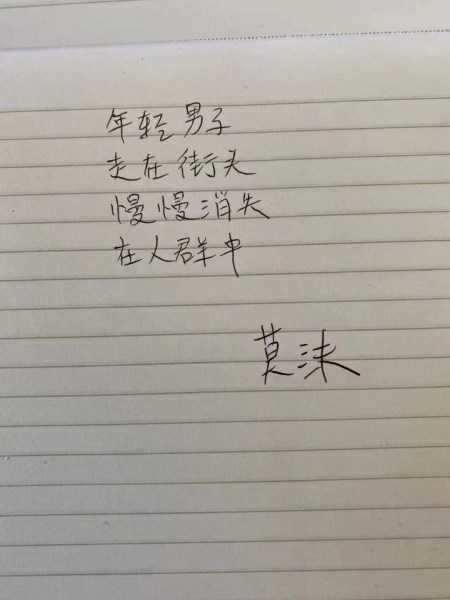 年轻男子
走在街头
慢慢消失
在人群中
莫沫